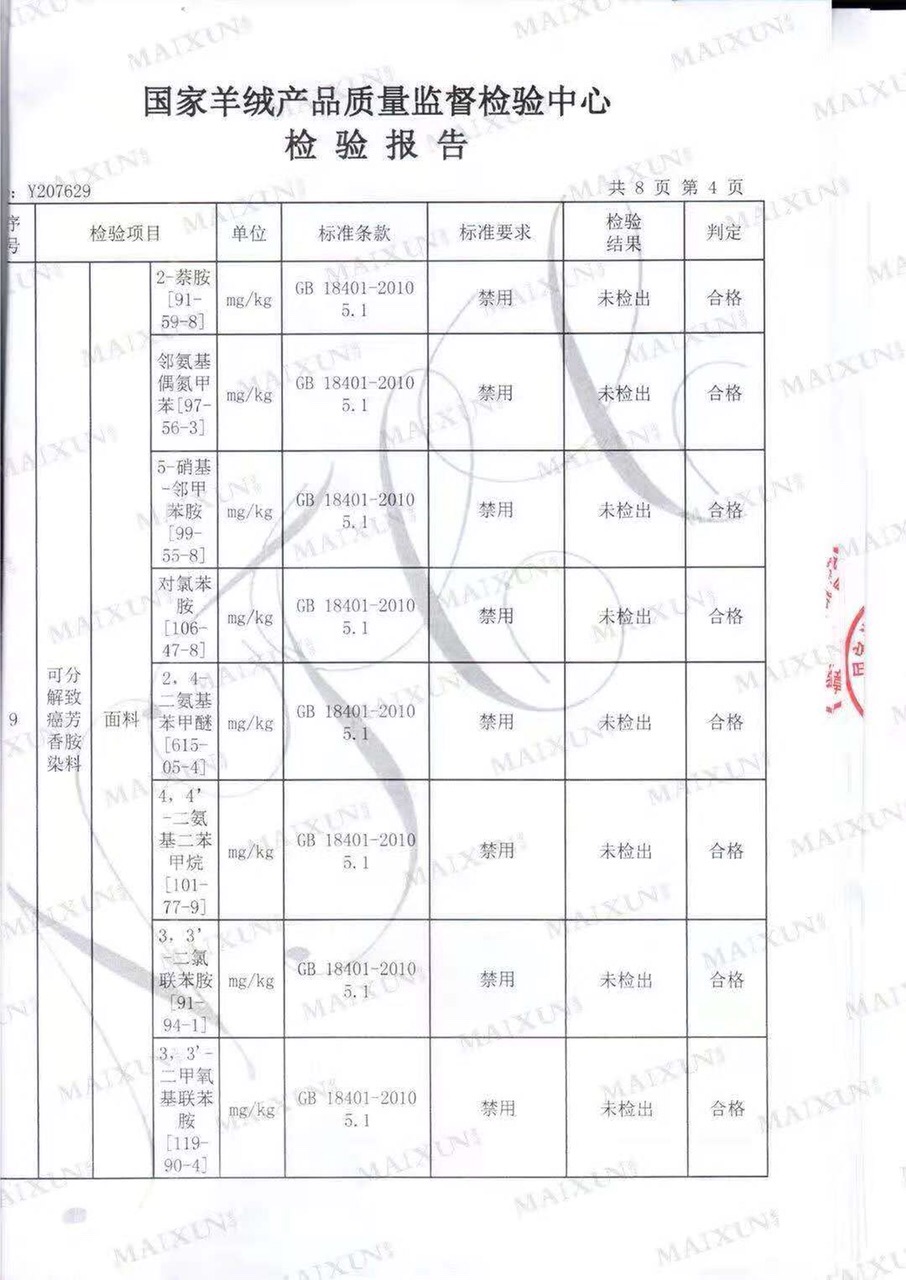 国家羊绒产品质量监督检验中心
检 验 报 告
: Y207629
共 8 页 第 4 页
序
号
检验项目
单位
标准条款
标准要求
检验
结果
判定
9
可分
解致
癌芳
香胺
染料
面料
2-萘胺
[91-
59-8]
mg/kg
GB 18401-2010
5.1
禁用
未检出
合格
邻氨基
偶氮甲
苯[97-
56-3]
mg/kg
GB 18401-2010
5.1
禁用
未检出
合格
5-硝基
-邻甲
苯胺
[99-
55-8]
mg/kg
GB 18401-2010
5.1
禁用
未检出
合格
对氯苯
胺
[106-
47-8]
mg/kg
GB 18401-2010
5.1
禁用
未检出
合格
2, 4-
二氨基
苯甲醚
[615-
05-4]
mg/kg
GB 18401-2010
5.1
禁用
未检出
合格
4, 4'
-二氨
基二苯
甲烷
[101-
77-9]
mg/kg
GB 18401-2010
5.1
禁用
未检出
合格
3, 3'
-二氯
联苯胺
[91-
94-1]
mg/kg
GB 18401-2010
5.1
禁用
未检出
合格
3, 3'-
二甲氧
基联苯
胺
[119-
90-4]
mg/kg
GB 18401-2010
5.1
禁用
未检出
合格
MAIXUN